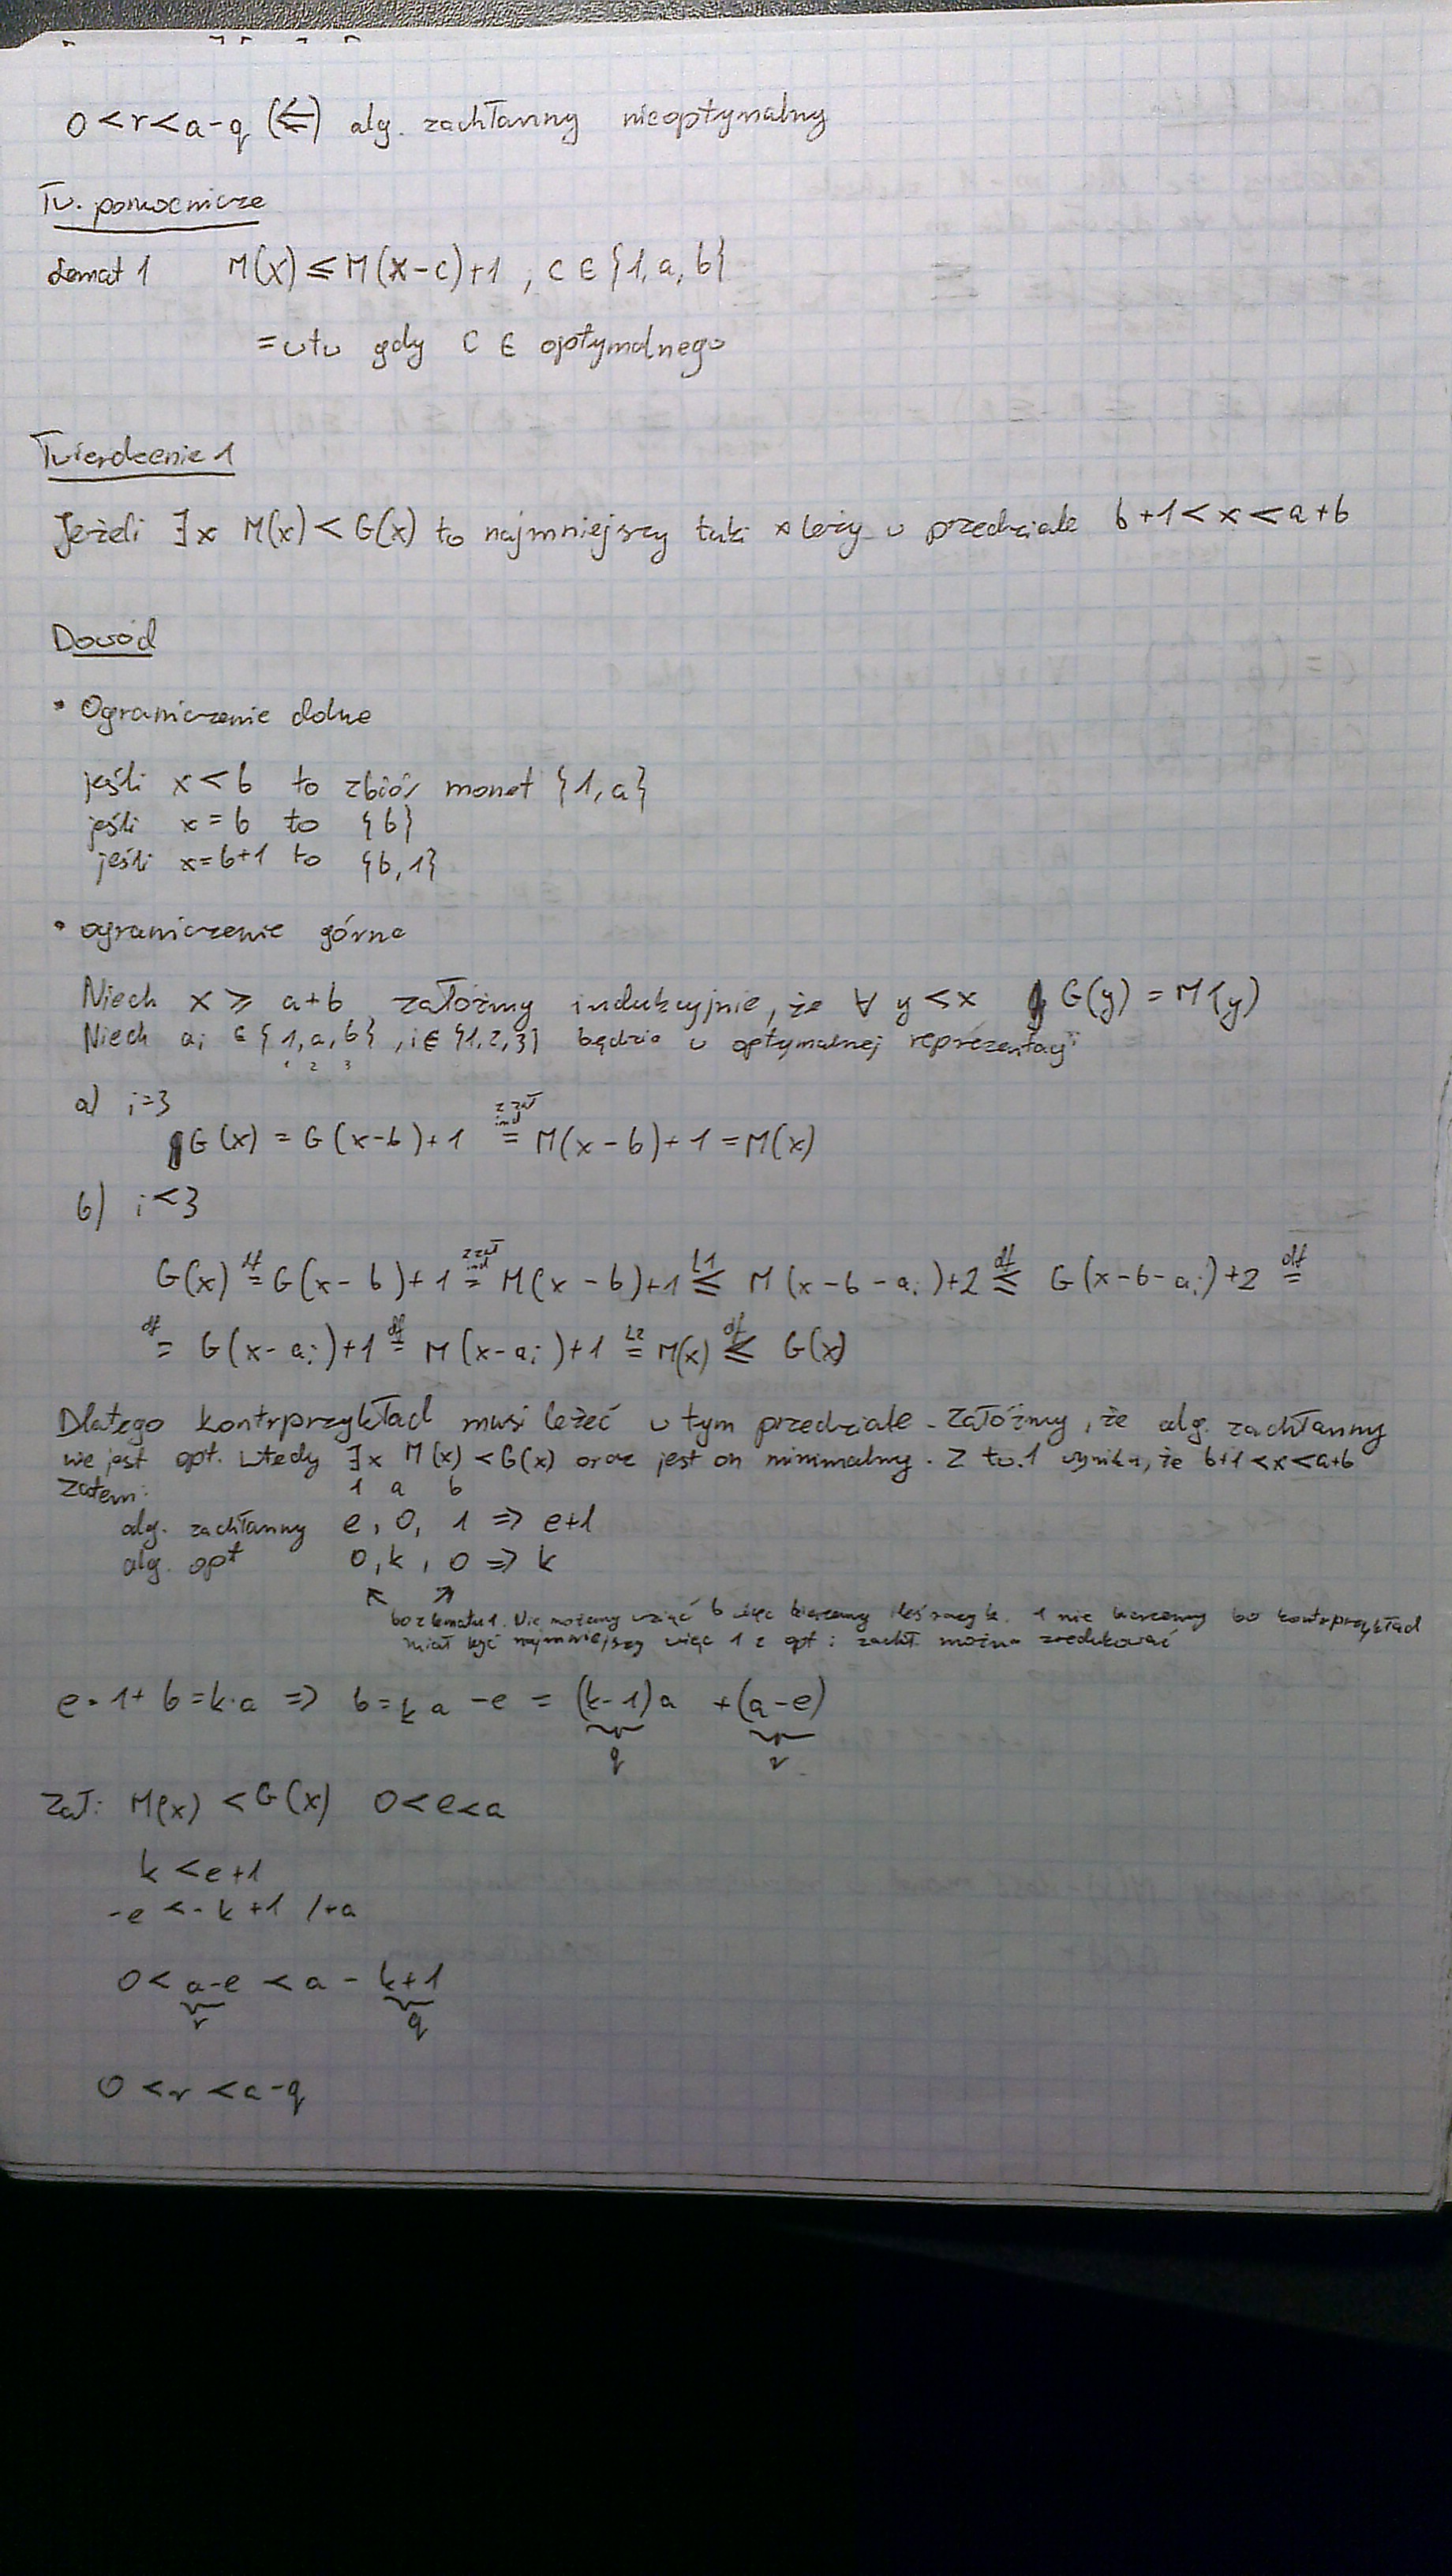 0 < r < a - q (⇐) alg. zachłanny nieoptymalny
Tw. pomocnicze
Lemat 1 M(x) ≤ M(x-c)+1 , c ∈ {1, a, b}
= wtw gdy c ∈ optymalnego
Twierdzenie 1
Jeżeli ∃x M(x) < G(x) to najmniejszy taki x leży w przedziale b+1 < x < a+b
Dowód
• Ograniczenie dolne
jeśli x < b to zbiór monet {1, a}
jeśli x = b to {b}
jeśli x = b+1 to {b, 1}
• ograniczenie górne
Niech x ≥ a+b załóżmy indukcyjnie, że ∀ y < x G(y) = M(y)
Niech ai ∈ {1, a, b} , i ∈ {1, 2, 3} będzie w optymalnej reprezentacji
1 2 3
a) i=3
z zał ind
G(x) = G(x-b)+1 = M(x-b)+1 = M(x)
b) i<3
df z zał ind L1 df df
G(x) = G(x-b)+1 = M(x-b)+1 ≤ M(x-b-ai)+2 ≤ G(x-b-ai)+2 =
df df L2 df
= G(x-ai)+1 = M(x-ai)+1 = M(x) ≤ G(x)
Dlatego kontrprzykład musi leżeć w tym przedziale. Załóżmy, że alg. zachłanny
nie jest opt. wtedy ∃x M(x) < G(x) oraz jest on minimalny. Z tw.1 wynika, że b+1 < x < a+b
Zatem: 1 a b
alg. zachłanny e, 0, 1 => e+1
alg. opt 0, k, 0 => k
↖ ↗
bo z lematu 1. Nie możemy wziąć b więc bierzemy ileś razy k. 1 nie bierzemy bo kontrprzykład
miał być najmniejszy więc 1 z opt i zachł. można zredukować
e·1+b=k·a => b=k a -e = (k-1)a +(a-e)
q r
Zał: M(x) < G(x) 0<e<a
k < e+1
-e < -k+1 /+a
0 < a-e < a - k+1
r q
0 < r < a-q